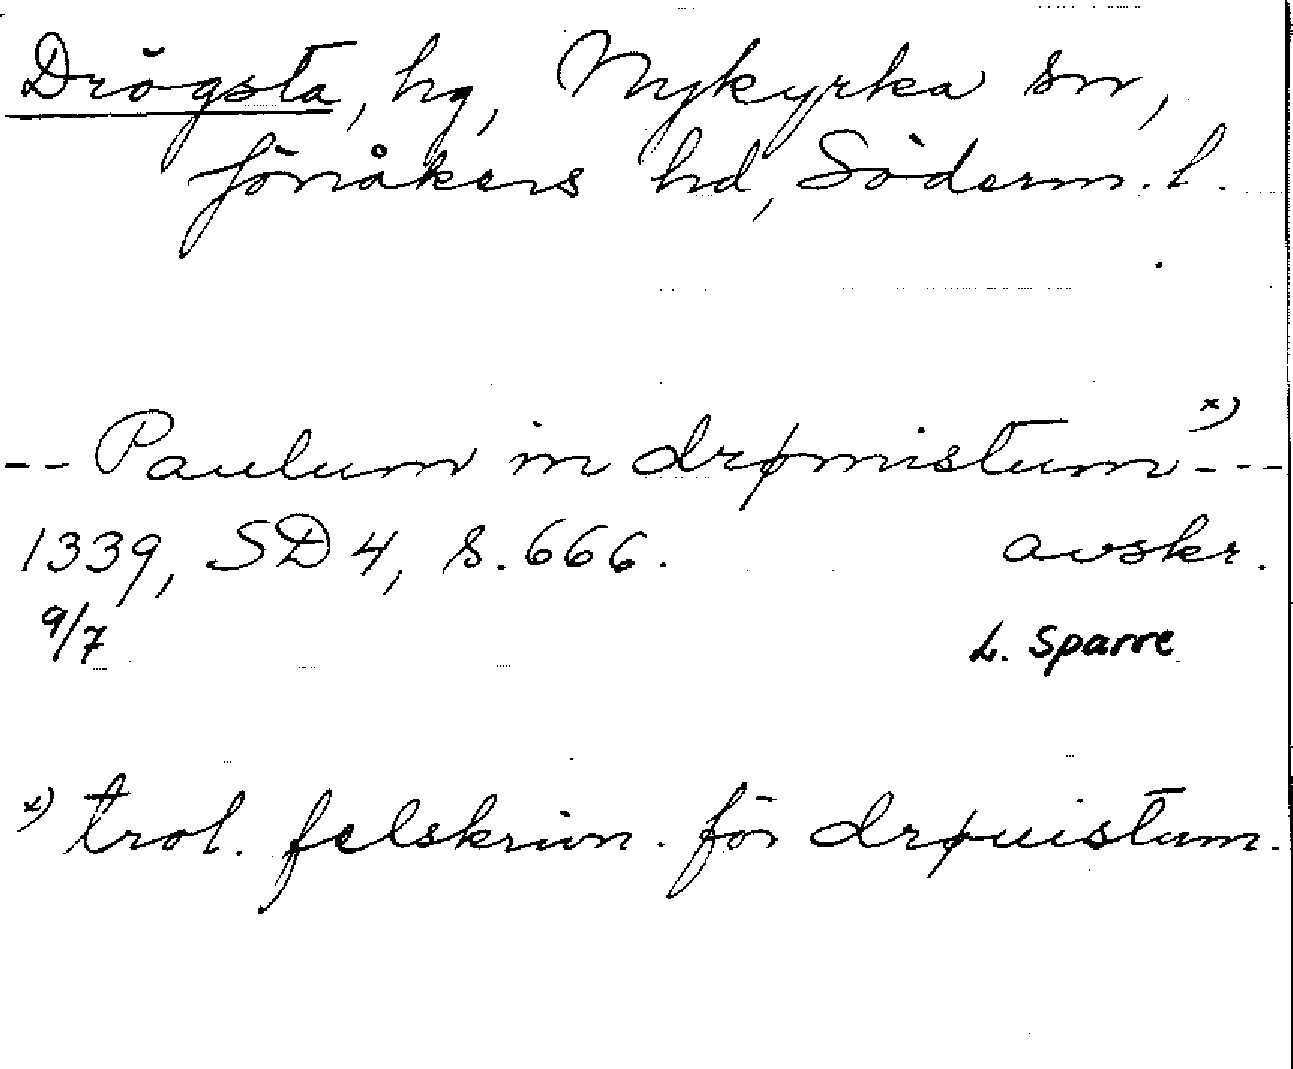 Drögsta, hg, Nykyrka sn,
Jönåkers hd, Söderm. l.
-- Paulum in drømistum x) ---
1339, SD 4, s. 666. avskr.
9/7 L. Sparre
x) trol. felskrivn. för drøuistum.